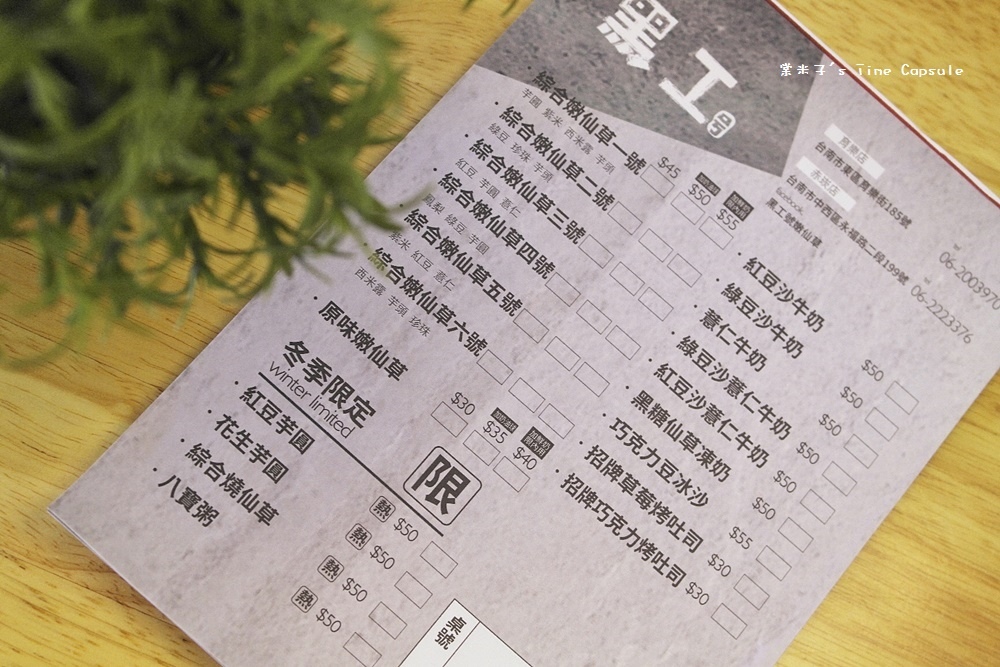 黑工号
棠米子's Time Capsule
育樂店
台南市東區育樂街185號
06-2003970
赤崁店
台南市中西區永福路二段199號
06-2223376
facebook
黑工號嫩仙草
$45 $50 $55
·綜合嫩仙草一號
芋圓 紫米 西米露 芋頭
·綜合嫩仙草二號
綠豆 珍珠 芋頭
·綜合嫩仙草三號
紅豆 芋圓 薏仁
·綜合嫩仙草四號
鳳梨 綠豆 芋圓
·綜合嫩仙草五號
紫米 紅豆 薏仁
綜合嫩仙草六號
西米露 芋頭 珍珠
·原味嫩仙草
$30 $35 $40
冬季限定
winter limited
限
·紅豆芋圓 熱 $50
·花生芋圓 熱 $50
·綜合燒仙草 熱 $50
·八寶粥 熱 $50
·紅豆沙牛奶 $50
·綠豆沙牛奶 $50
·薏仁牛奶 $50
·綠豆沙薏仁牛奶 $50
·紅豆沙薏仁牛奶 $50
·黑糖仙草凍奶 $50
·巧克力豆冰沙 $55
·招牌草莓烤吐司 $30
·招牌巧克力烤吐司 $30
桌號